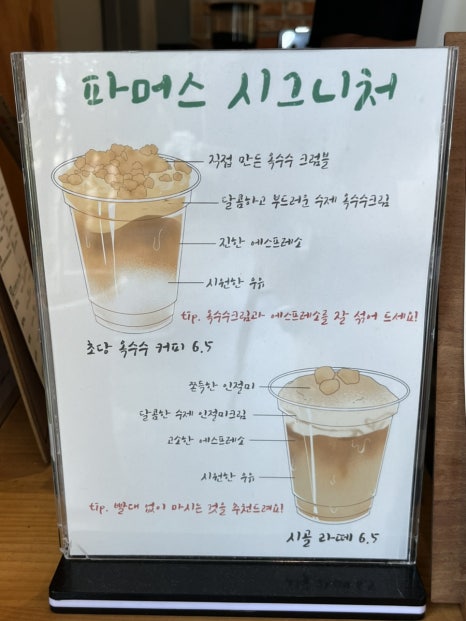 파머스 시그니처
직접 만든 옥수수 크럼블
달콤하고 부드러운 수제 옥수수크림
진한 에스프레소
시원한 우유
tip. 옥수수크림과 에스프레소를 잘 섞어 드세요!
초당 옥수수 커피 6.5
쫀득한 인절미
달콤한 수제 인절미크림
고소한 에스프레소
시원한 우유
tip. 빨대 없이 마시는 것을 추천드려요!
시골 라떼 6.5